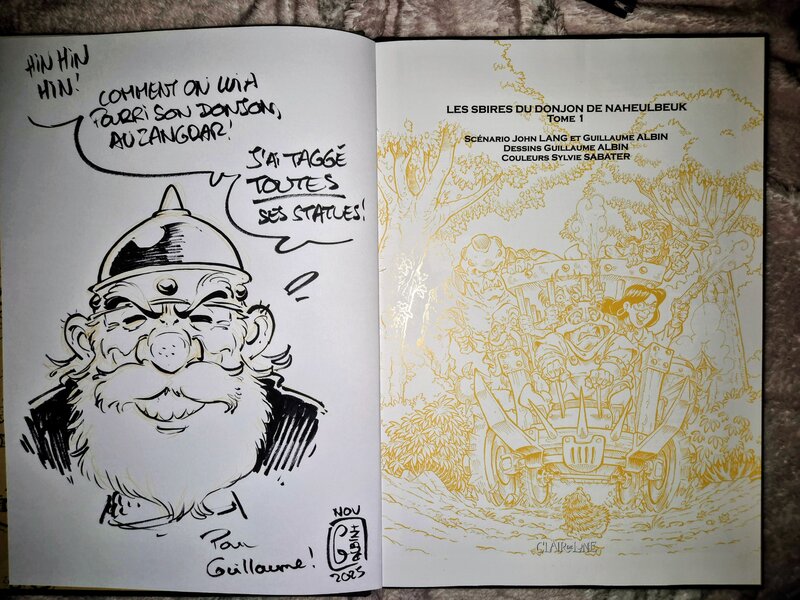 HIN HIN
HIN!
COMMENT ON LUI A
POURRI SON DONJON,
AU ZANGDAR!
J'AI TAGGÉ
TOUTES
SES STATUES!
Pour
Guillaume!
NOV
ALBIN
G
2025
LES SBIRES DU DONJON DE NAHEULBEUK
TOME 1
SCÉNARIO JOHN LANG ET GUILLAUME ALBIN
DESSINS GUILLAUME ALBIN
COULEURS SYLVIE SABATER
CLAIR DE LUNE